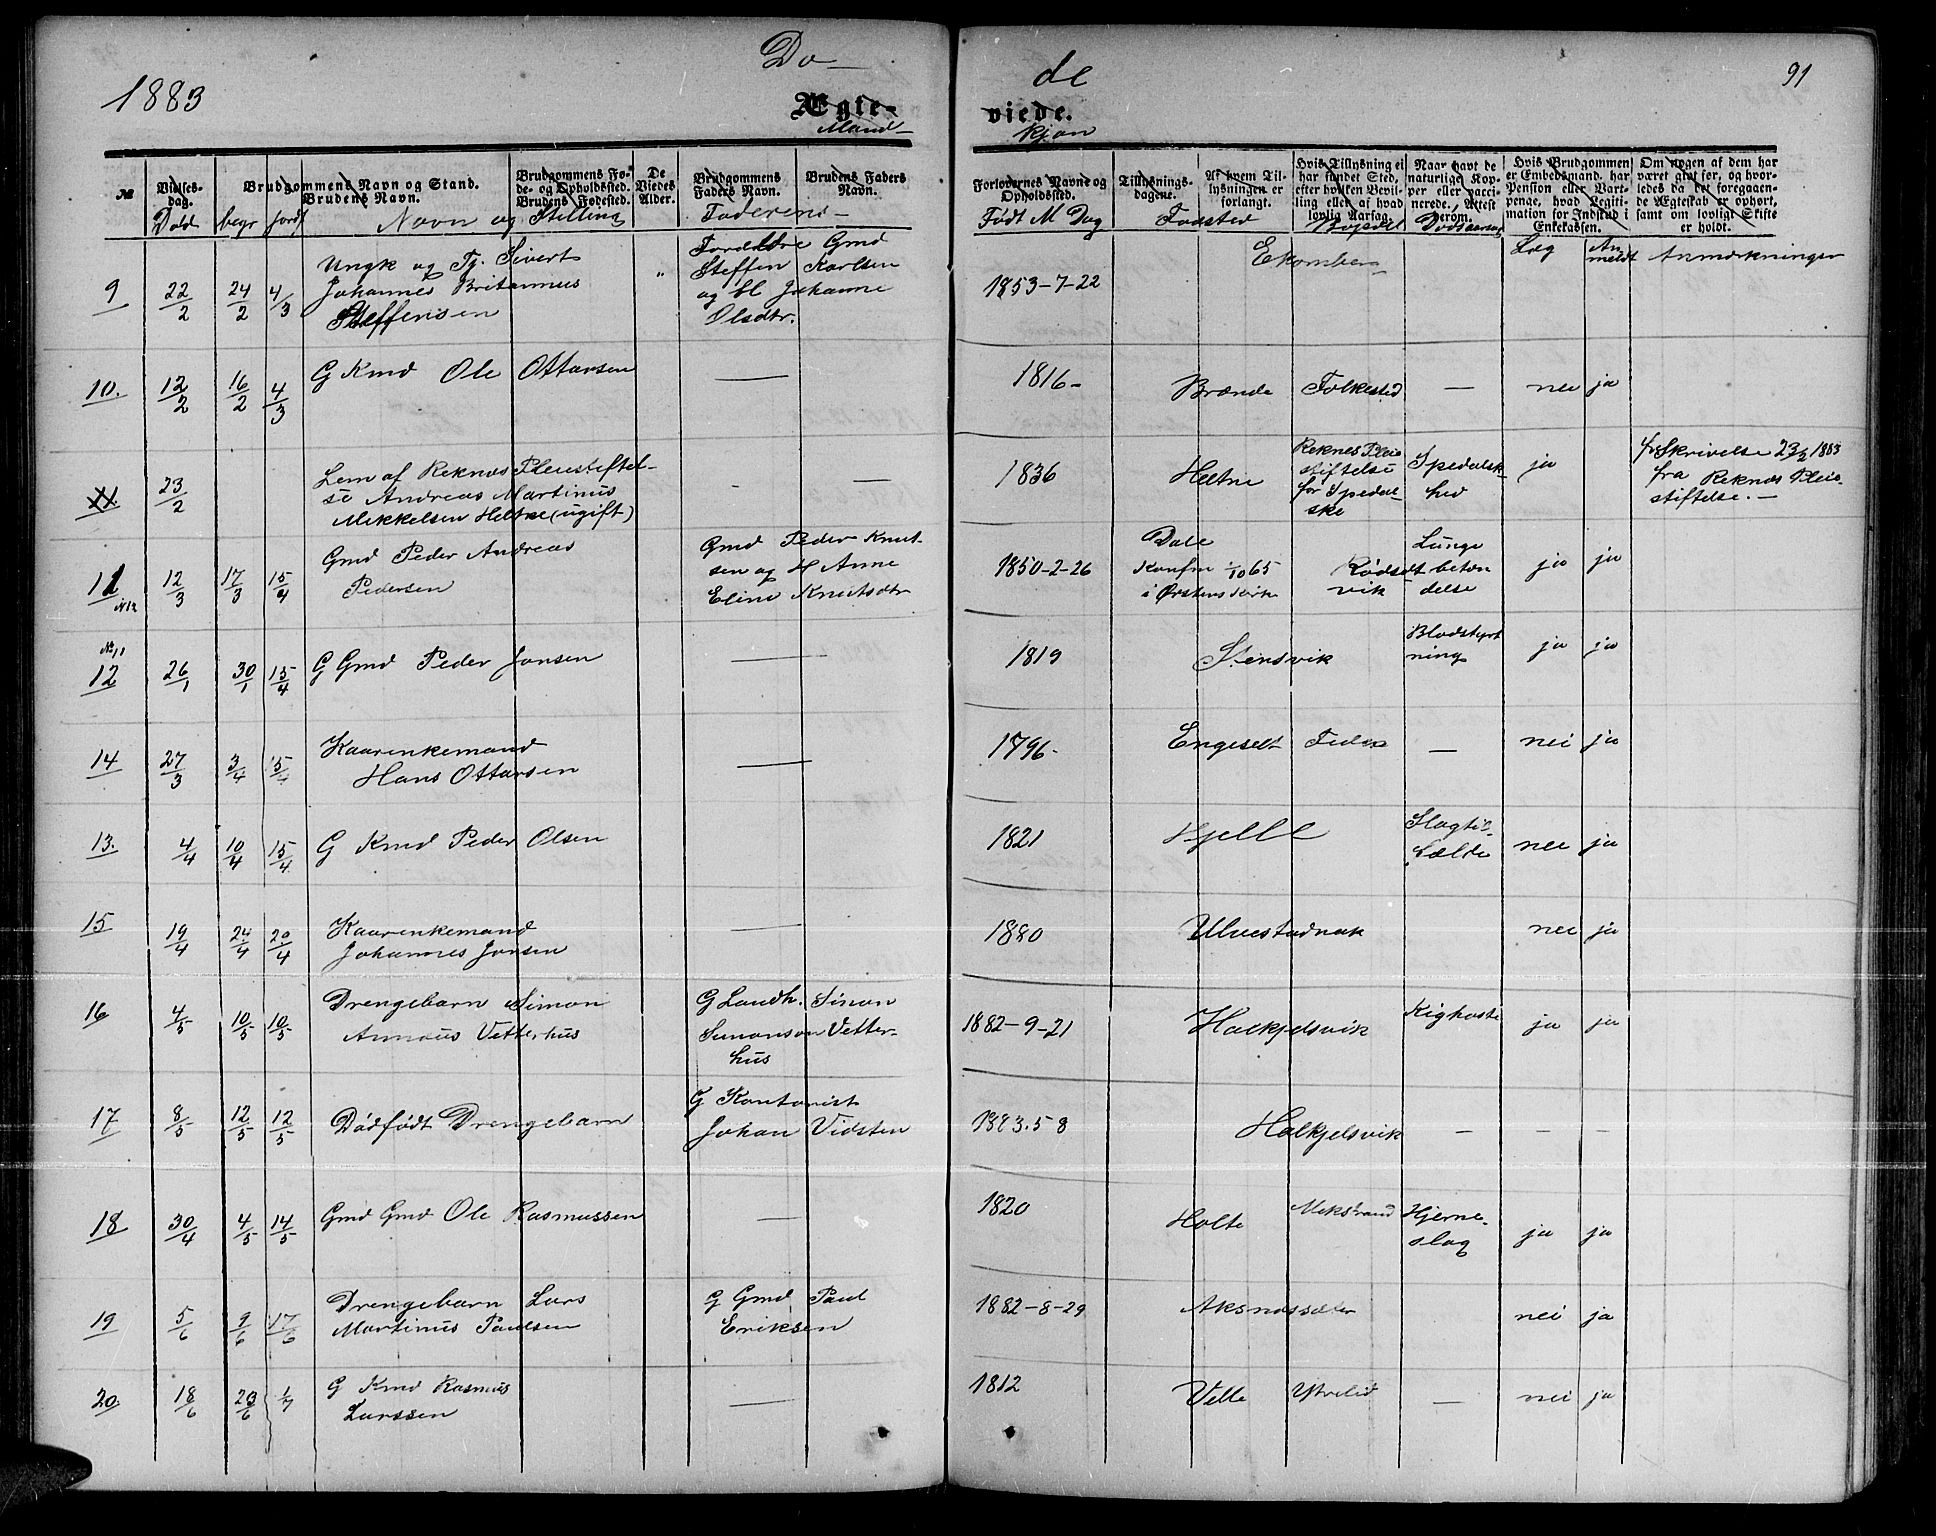 1883
Dø-
de
91
Ægte-
viede.
Mand-
kjøn
№
Vielses-
dag.
Brudgommens Navn og Stand.
Brudens Navn.
Brudgommens Fø-
de- og Opholdssted.
Brudens Fødested.
De
Viedes
Alder.
Brudgommens
Faders Navn.
Brudens Faders
Navn.
Forlovernes Navne og
Opholdssted.
Tillysnings-
dagene.
Af hvem Til-
lysningen er
forlangt.
Hvis Tillysning ei
har fundet Sted,
efter hvilken Bevil-
ling eller af hvad
lovlig Aarsag.
Naar havt de
naturlige Kop-
per eller vacci-
nerede. Attest
derom.
Hvis Brudgommen
er Embedsmand, har
Pension eller Vart-
penge, hvad Legiti-
mation for Indskud i
Enkekassen.
Om nogen af dem har
været gift før, og hvor-
ledes da det foregaaen-
de Ægteskab er ophørt,
samt om lovligt Skifte
er holdt.
Død begr jordf Navn og Stilling Faderens-
Født M Dag Fødested Bopæl Dødsaarsag
Læg An
meldt Anmærkninger
9 22/2 24/2 4/3 Ungk og Tj. Sivert
Johannes Britannus
Steffensen
" Forældre Gmd
Steffen Karlsen
og bl Johanne
Olsdtr.
1853-7-22
10. 12/2 16/2 4/3 G Kmd Ole Ottarsen — 1816- Brænde Folkestad — nei ja
11. 23/2 Lem af Reknæs Pleiestiftel-
se Andreas Martinus
Mekkelsen Heltne (ugift)
- — 1836 Heltne
Reknes Pleie
stiftelse
for Spedal-
ske
Spedalsk-
hed
ja
for Skrivelse 23/2 1883
fra Reknæs Pleie-
stiftelse. —
11 12/3 17/3 15/4 Gmd Peder Andreas
Pedersen
Gmd Peder Knut-
sen og H Anne
Eline Knutsdtr
1850-2-26
Dale
Konfm 1/10 65
i Ørstens Kirke
Rødset
vik
Lunge
betæn
delse
ja ja
№ 11
12 26/1 30/1 15/4 G Gmd Peder Jonsen — 1819 Stensvik
Blodstyrt
ning
ja ja
14 27/3 3/4 15/4 Kaarenkemand
Hans Ottarsen
— 1796- Engeset — nei ja
13. 4/4 10/4 15/4 G Kmd Peder Olsen 1821 Hjelle
Slagti-
fælde
nei ja
15 19/4 24/4 20/4 Kaarenkemand
Johannes Jonsen
— 1880 Ulvestadnak nei ja
16 4/5 10/5 10/5 Drengebarn Simon
Annæus Vetterhus
G Landh. Simon
Simonsen Vetter-
hus
1882-9-21 Halkjelsvik Kighoste ja ja
17 8/5 12/5 12/5 Dødfødt Drengebarn
G Kontorist
Johan Vidsten
1883.5-8 Halkjelsvik — — —
18 30/4 4/5 14/5 Gmd Gmd Ole Rasmussen — 1820 Holte Mekstrand
Hjerne-
slag
ja ja
19 5/6 9/6 17/6 Drengebarn Lars
Martinus Paulsen
G Gmd Paul
Eriksen
1882-8-29 Aksnæssæter nei ja
20. 18/6 20/6 1/7 G Kmd Rasmus
Larssen
— 1812 Velle Ytrelid — nei ja